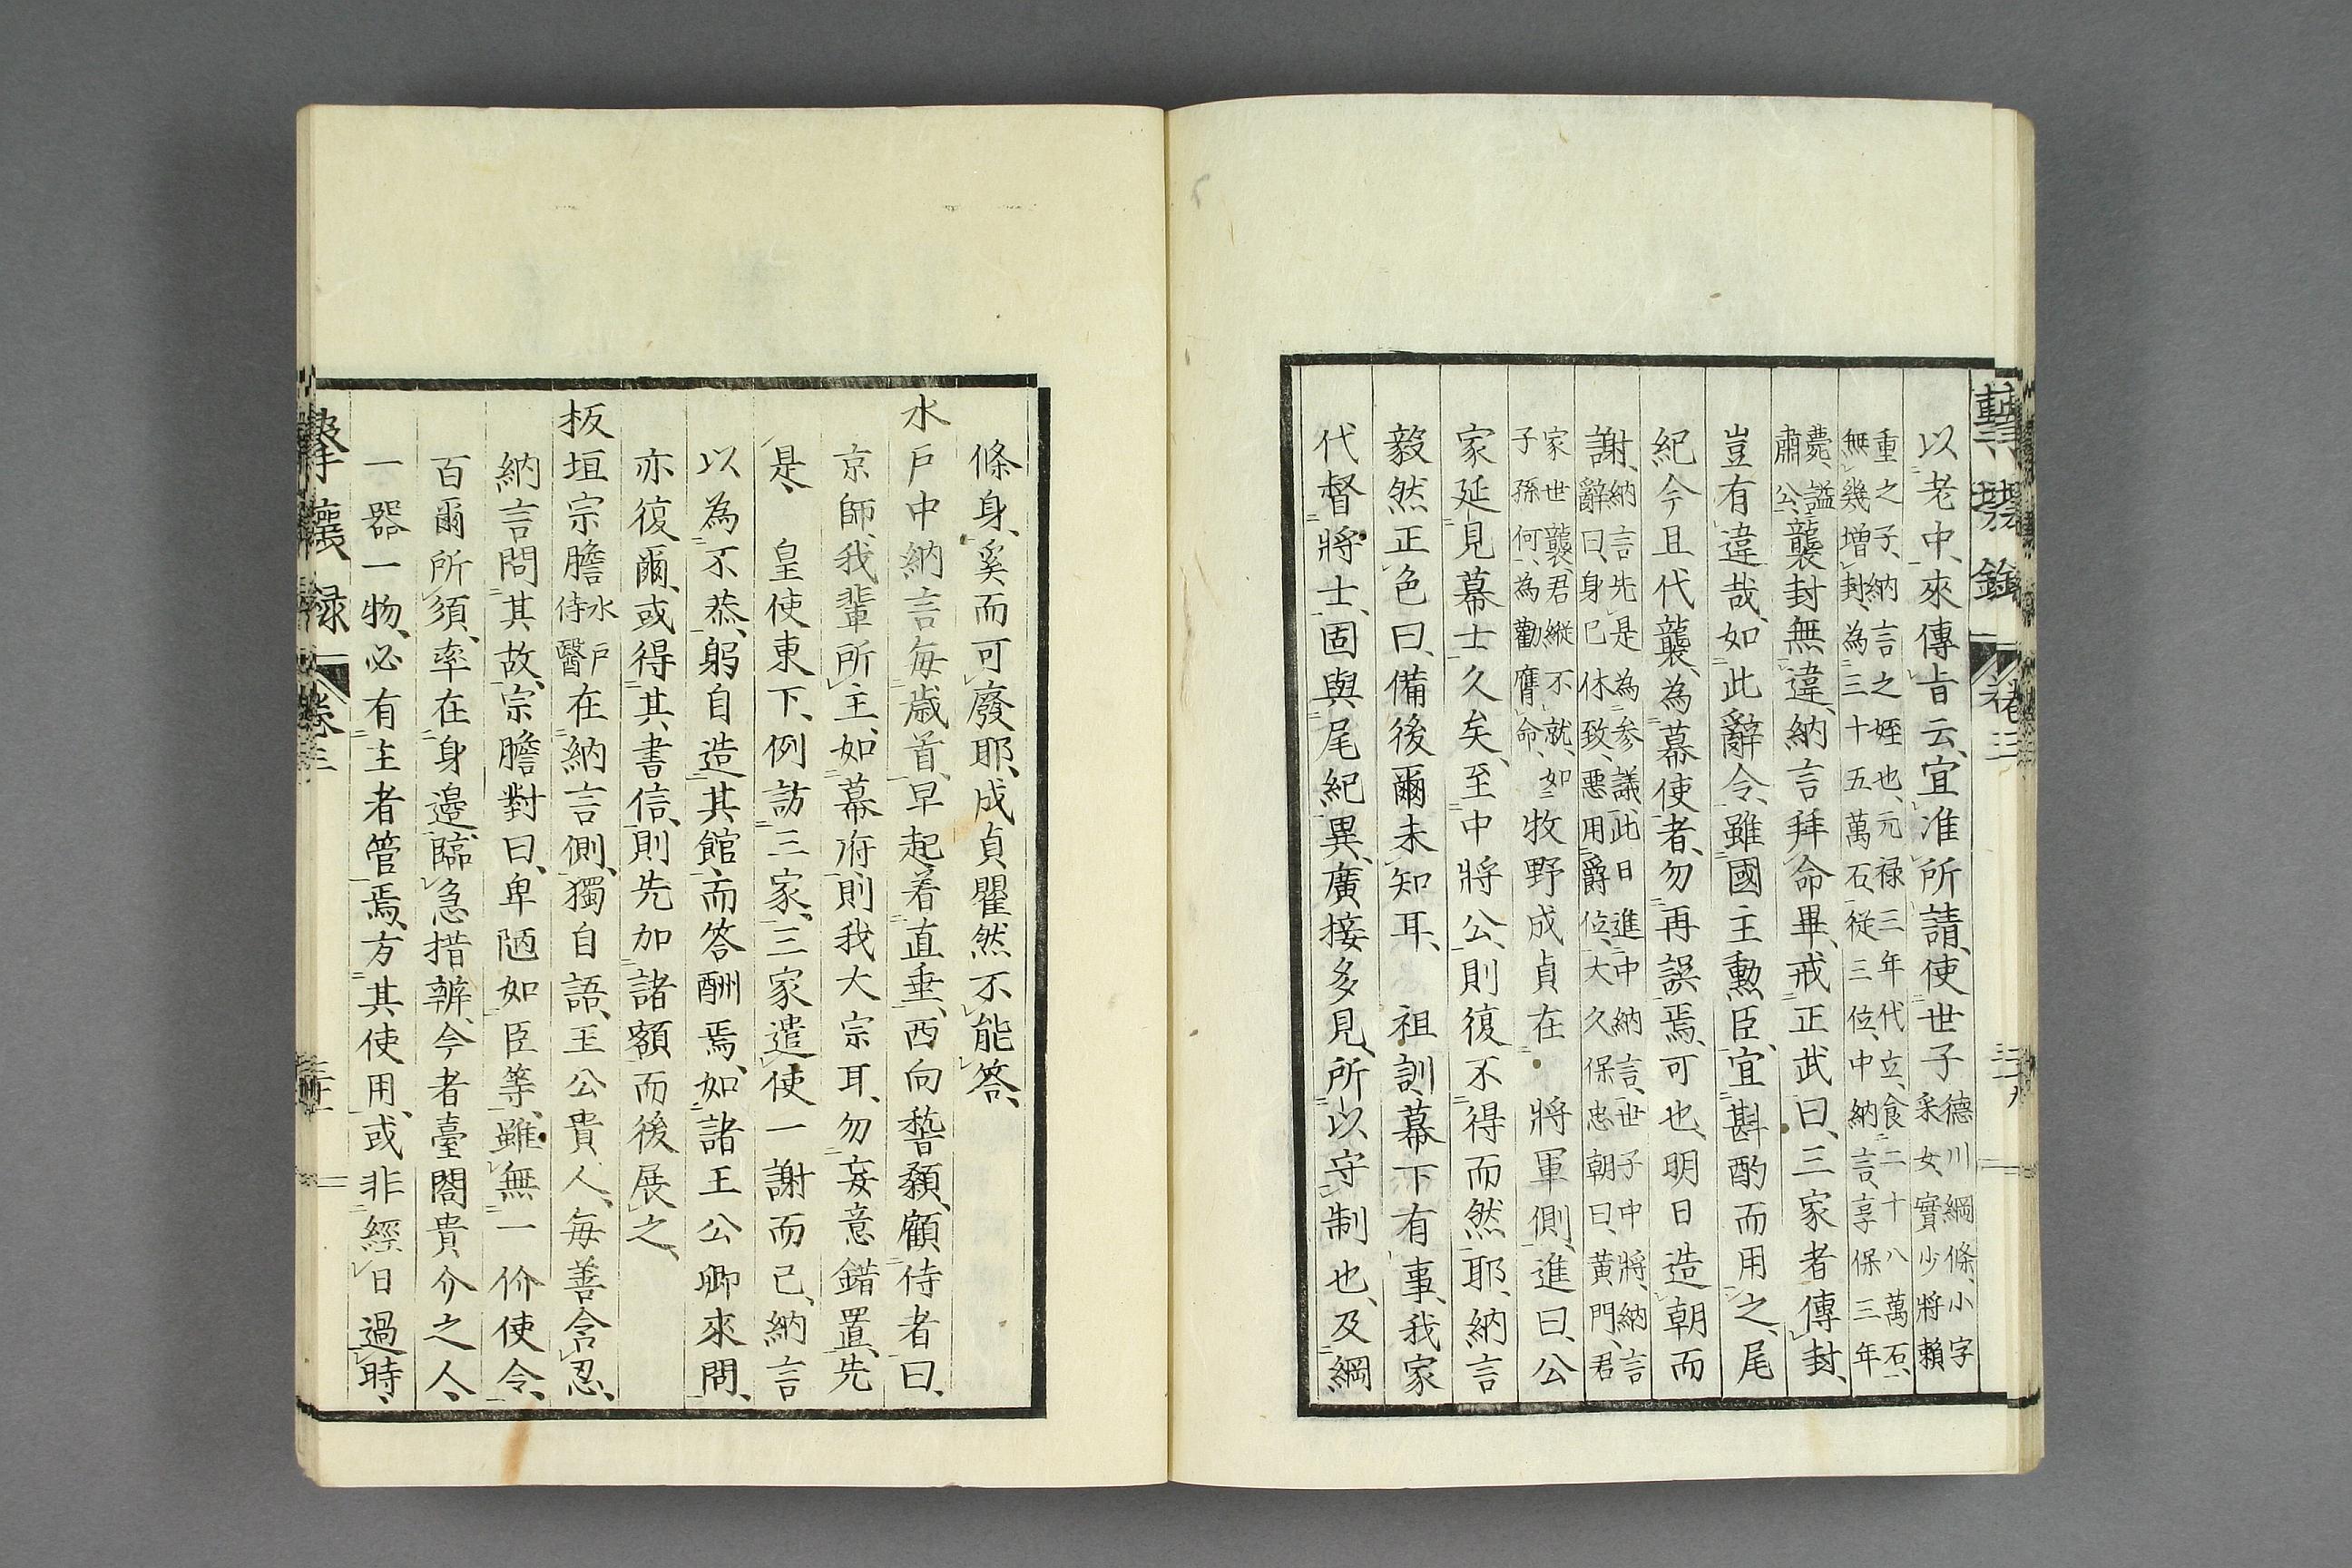 以老中、來傳旨云、宜准所請、使世子德川綱條、小字采女、實少將賴
重之子、納言之姪也、元禄三年代立、食二十八萬石、無幾増封、為三十五萬石、從三位、中納言、享保三年
薨、謚肅公、襲封無違、納言拜命畢、戒正武曰、三家者傳封、
豈有違哉、如此辭令、雖國主勲臣、宜斟酌而用之、尾
紀今且代襲、為幕使者、勿再誤焉、可也、明日造朝而
謝、納言先是為参議、此日進中納言、世子中將、納言辭曰、身已休致、悪用爵位、大久保忠朝曰、黄門、君
家世襲、君縱不就、如子孫何、為勸膺命、牧野成貞在 將軍側、進曰、公
家延見幕士久矣、至中將公、則復不得而然耶、納言
毅然正色曰、備後爾未知耳、 祖訓、幕下有事、我家
代督將士、固與尾紀異、廣接多見、所以守制也、及綱
條身、奚而可廢耶、成貞瞿然不能答、
水戸中納言毎歳首、早起、着直垂、西向稽顙、顧侍者曰、
京師、我輩所主、如幕府、則我大宗耳、勿妄意錯置、先
是、 皇使東下、例訪三家、三家遣使一謝而已、納言
以為不恭、躬自造其館、而答酬焉、如諸王公卿來問、
亦復爾、或得其書信、則先加諸額而後展之、
板垣宗膽水戸侍醫在納言側、獨自語、王公貴人、毎善含忍、
納言問其故、宗膽對曰、卑陋如臣等、雖無一价使令、
百爾所須、率在身邉、臨急措辦、今者臺閤貴介之人、
一器一物、必有主者管焉、方其使用、或非經日過時、
卷三